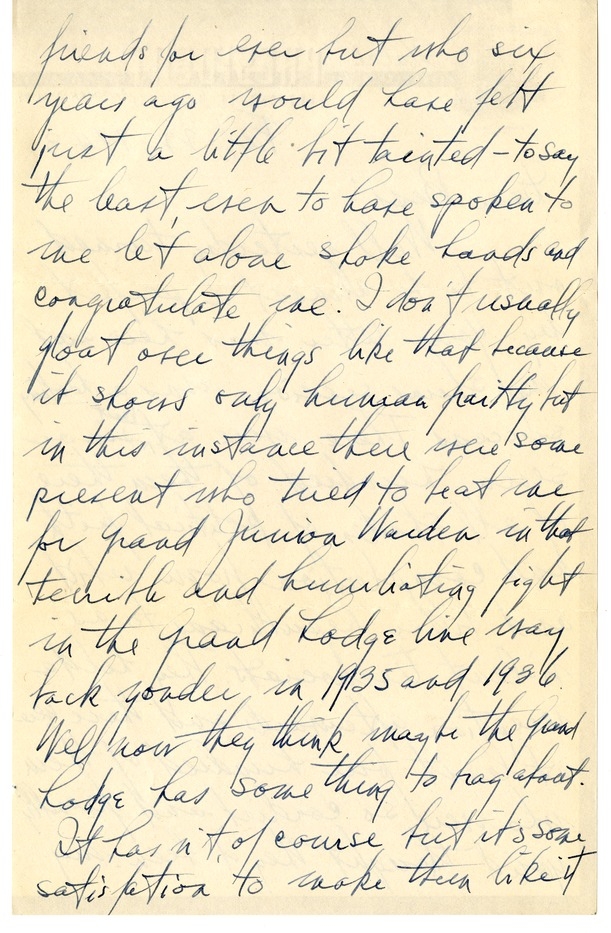 friends for ever but who six
years ago would have felt
just a little bit tainted - to say
the least, even to have spoken to
me let alone shake hands and
congratulate me. I don't usually
gloat over things like that because
it shows only human frailty but
in this instance there were some
present who tried to beat me
for Grand Junior Warden in that
terrible and humiliating fight
in the Grand Lodge line way
back yonder in 1935 and 1936.
Well now they think maybe the Grand
Lodge has some thing to brag about.
It hasn't, of course but it's some
satisfation to make them like it